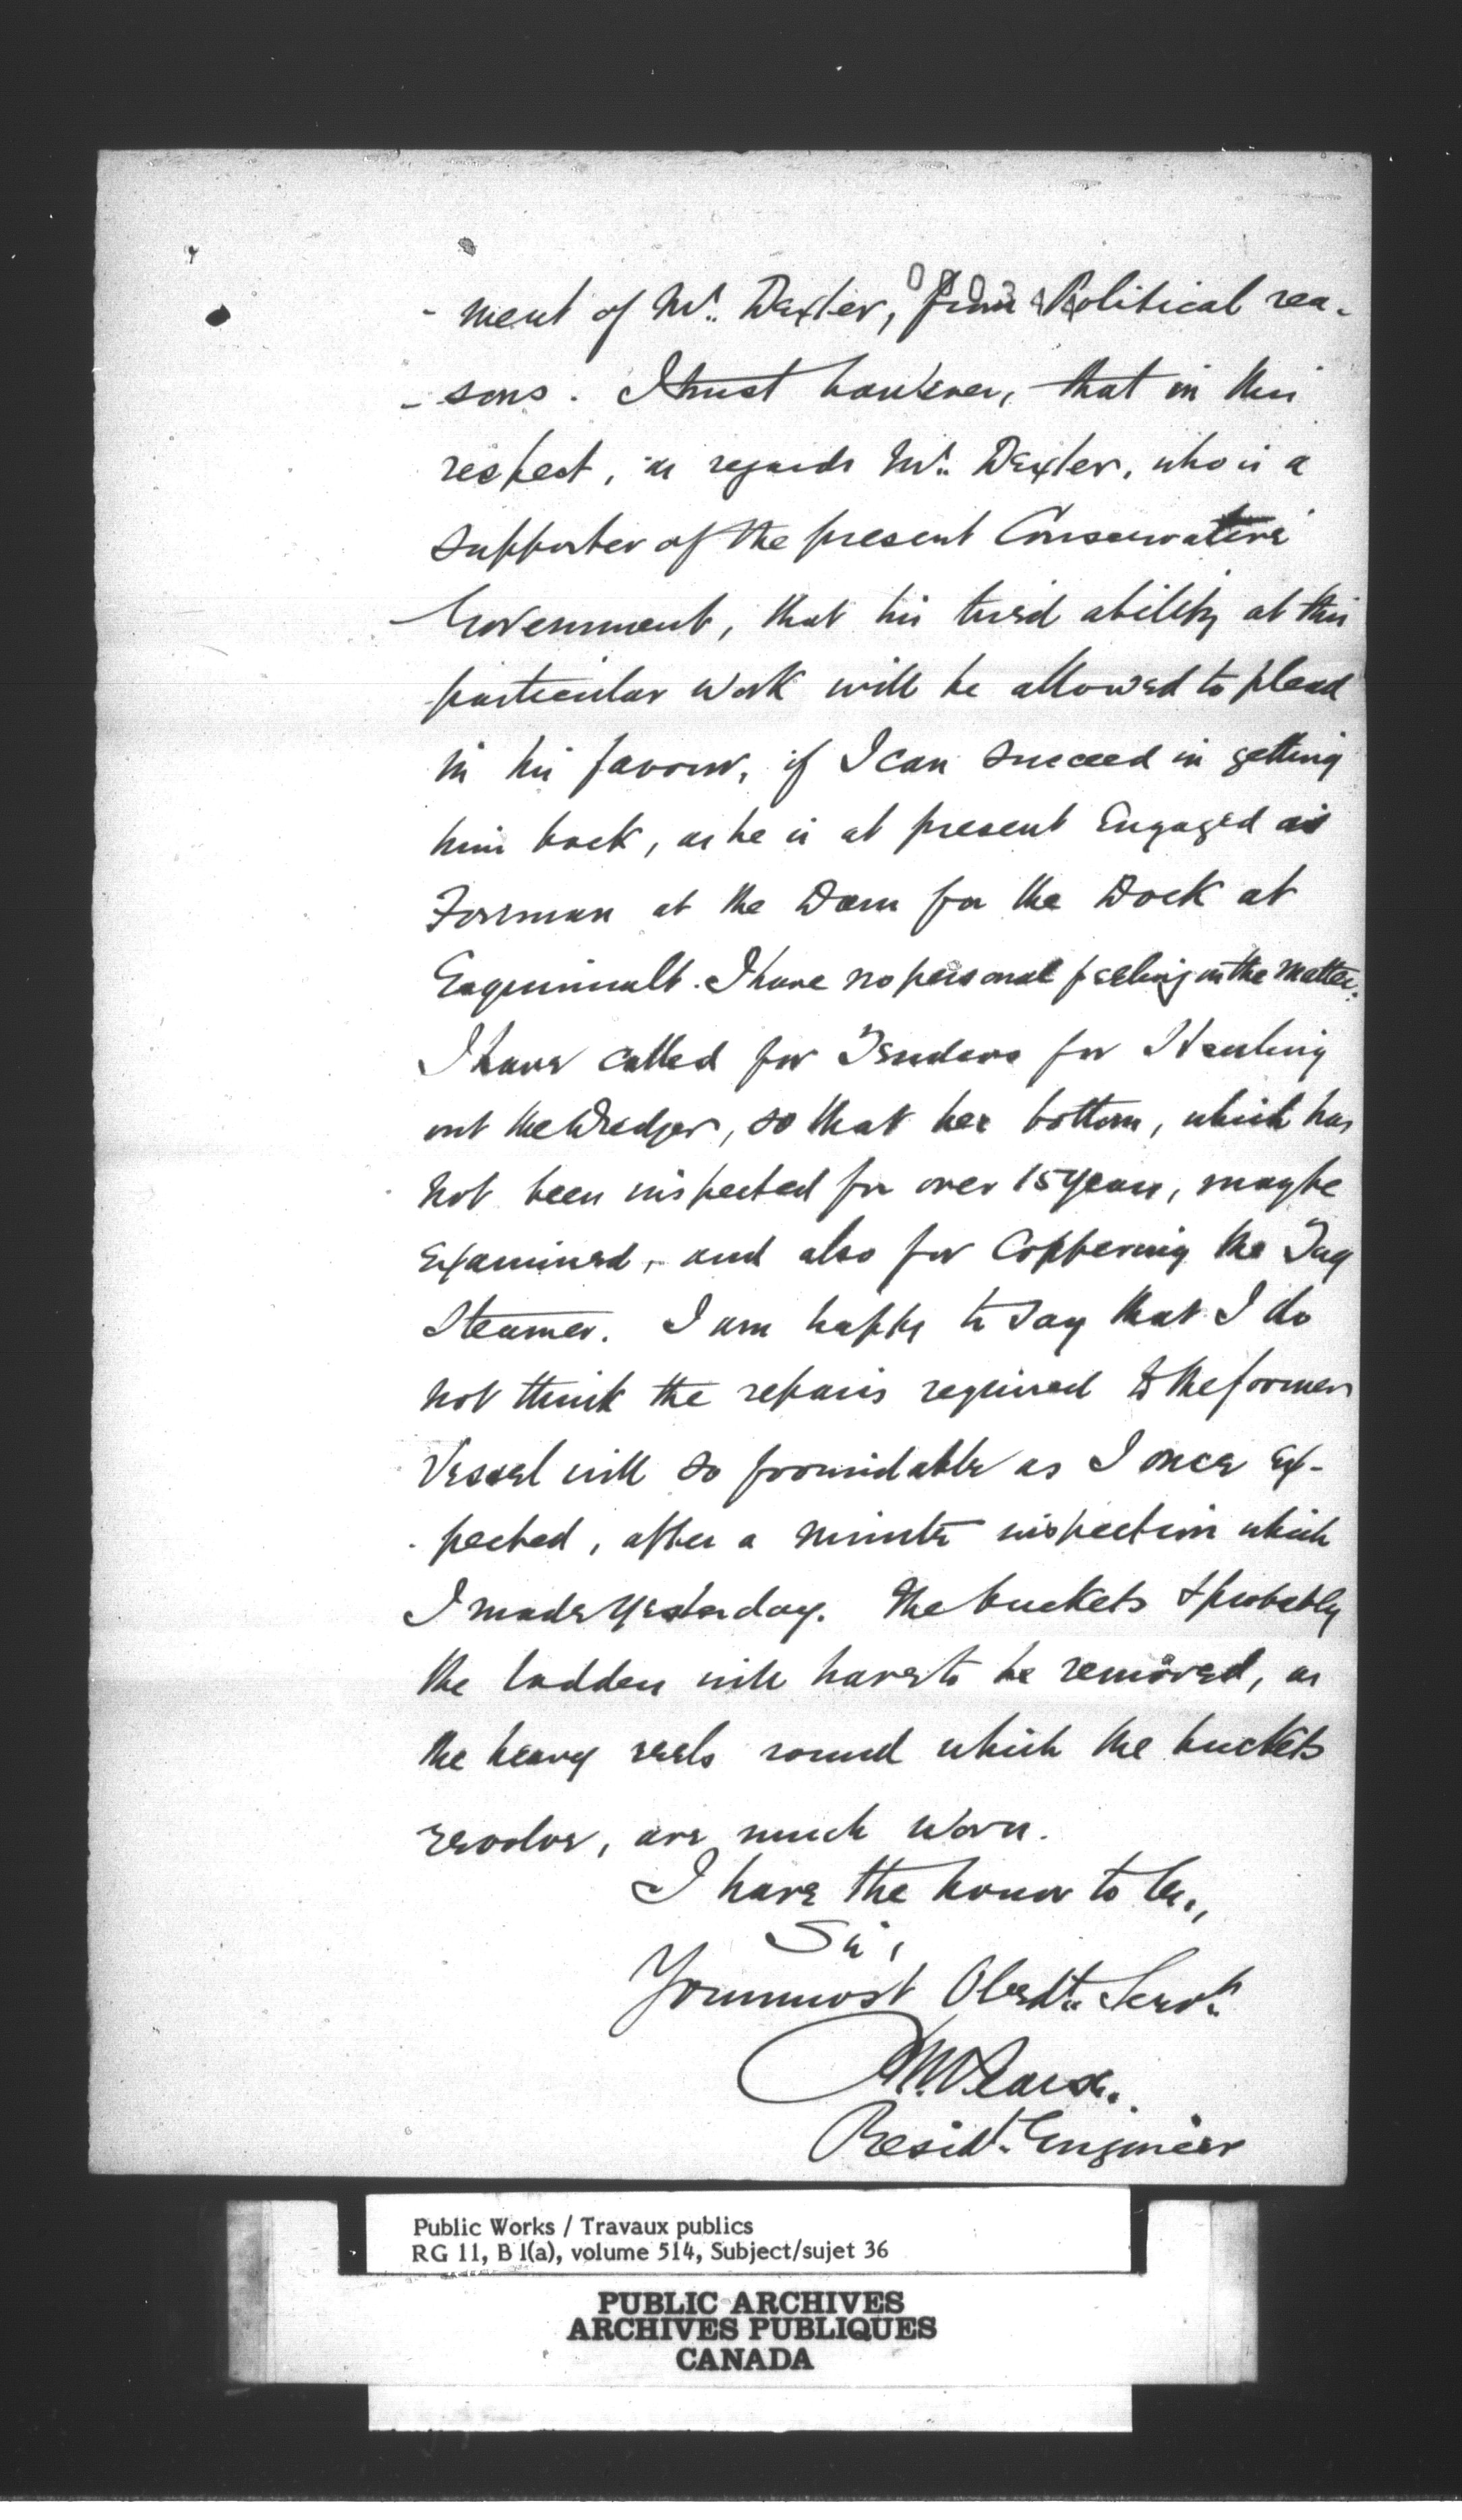 - ment of Mr. Dexter, from Political rea-
- sons. I trust however, that in this
respect, as regards Mr. Dexter, who is a
supporter of the present Conservative
Government, that his tried ability at this
particular work will be allowed to plead
in his favour, if I can succeed in getting
him back, as he is at present Engaged as
Foreman at the Dam for the Dock at
Esquimalt. I have no personal feeling in the matter.
I have called for Tenders for Hauling
out the Dredger, so that her bottom, which has
not been inspected for over 15 years, may be
Examined, and also for Coppering the Tug
Steamer. I am happy to say that I do
not think the repairs required to the former
Vessel will so formidable as I once Ex-
- pected, after a minute inspection which
I made yesterday. The buckets & probably
the ladder will have to be removed, as
the heavy reels round which the buckets
revolve, are much worn.
I have the honor to be,
Sir,
Your most Obedt. Servt.
Residt. Engineer
Public Works / Travaux publics
RG 11, B 1(a), volume 514, Subject/sujet 36
PUBLIC ARCHIVES
ARCHIVES PUBLIQUES
CANADA